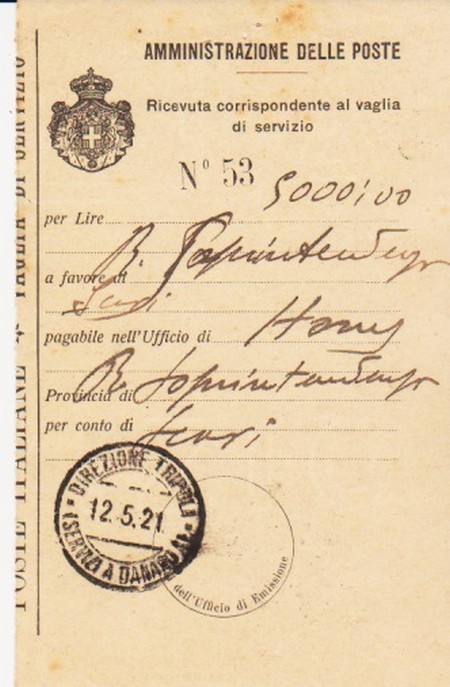 AMMINISTRAZIONE DELLE POSTE
Ricevuta corrispondente al vaglia
di servizio
N° 53
5000,00
per Lire
R. Soprintendenza
a favore di
Scavi
pagabile nell'Ufficio di Homs
Provincia di R. Soprintendenza
per conto di Scavi
DIREZIONE TRIPOLI
12.5.21
(SERVIZI A DANARO)
dell'Ufficio di Emissione
POSTE ITALIANE
VAGLIA DI SERVIZIO